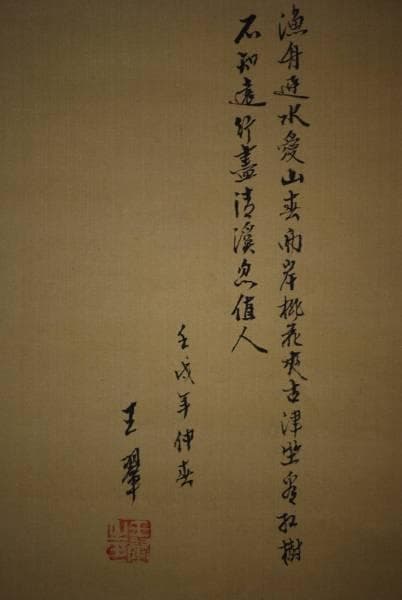 漁舟逐水愛山春兩岸桃花夾古津坐看紅樹
不知遠行盡清溪忽值人
壬戌年仲春
王翬
王翬之印